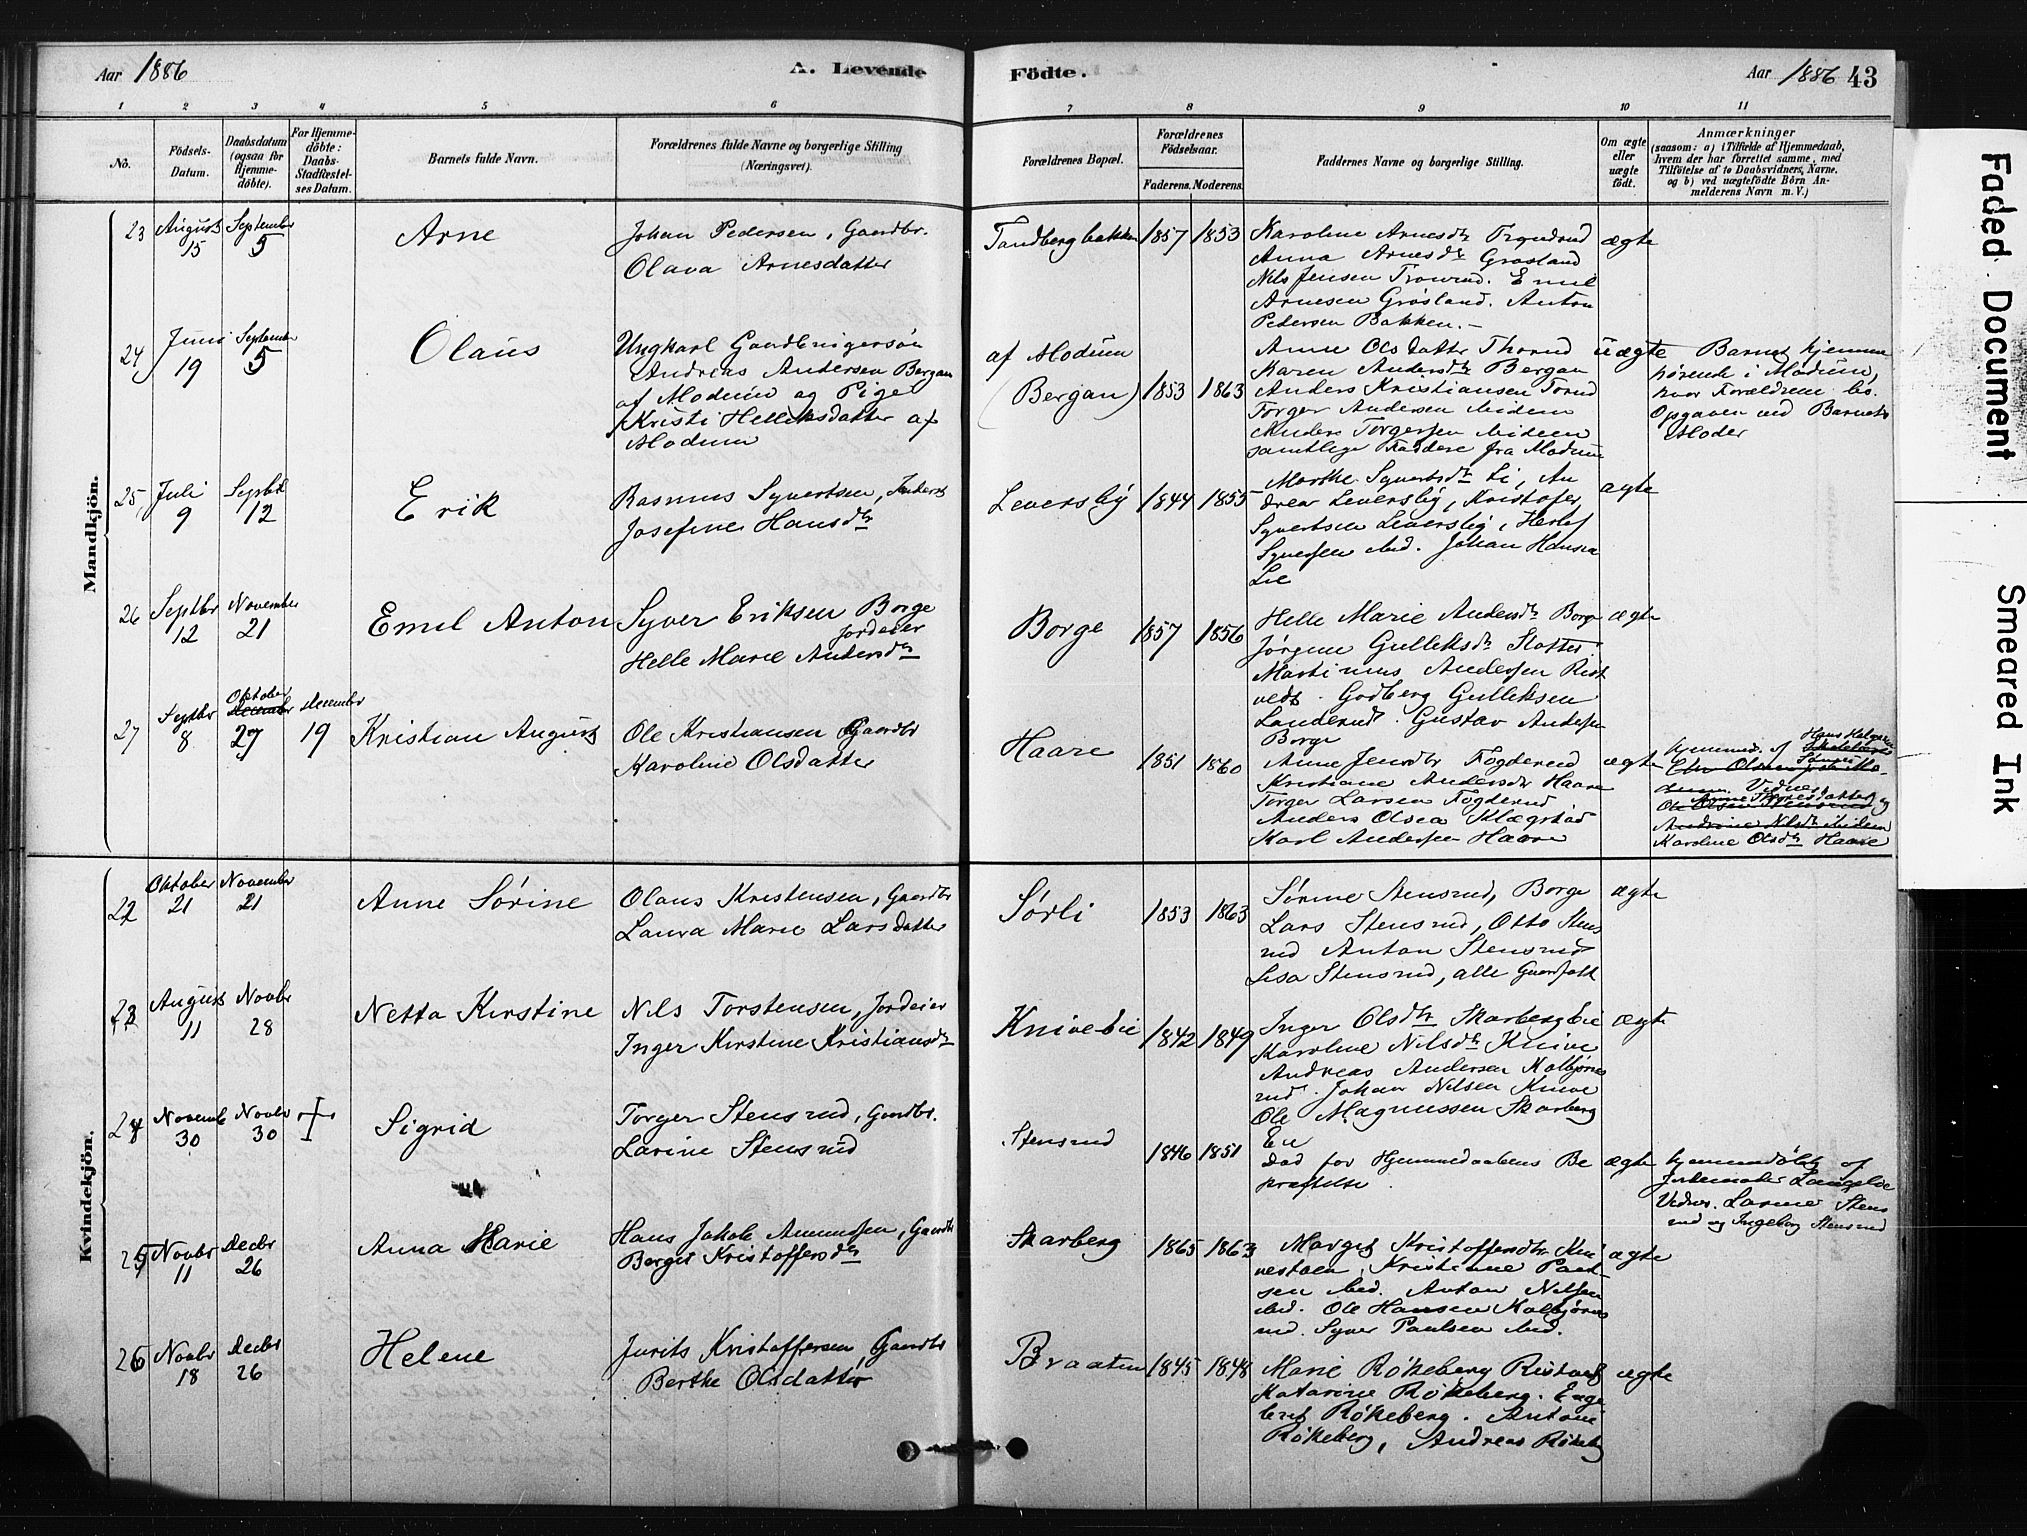 Aar 1886 A. Levende Födte. Aar 1886 43
1 2 3 4 5 6 7 8 9 10 11
No.
Födsels-Datum.
Daabsdatum (ogsaa for Hjemme-döbte).
For Hjemme-döbte: Daabs-Stadfæstel-ses Datum.
Barnets fulde Navn.
Forældrenes fulde Navne og borgerlige Stilling (Næringsvei).
Forældrenes Bopæl.
Forældrenes Födselsaar.
Faderens. Moderens.
Faddernes Navne og borgerlige Stilling.
Om ægte eller uægte födt.
Anmærkninger
(saasom: a) i Tilfælde af Hjemmedaab,
hvem der har forrettet samme, med
Tilföielse af to Daabsvidners Navne,
og b) ved uægtefödte Börn An-
melderens Navn m. V.)
Mandkjön.
23 August 15 September 5 Arne
Johan Pedersen, Gaardbr.
Olava Arnesdatter
Tandbergbakken 1857 1853
Karoline Arnesdtr
Anna Arnesdtr Grøsland
Nils Jensen Emil
Arnesen Grøsland. Anton
Pedersen Bakken.
ægte
24 Juni 19 September 5 Olaus
Ungkarl Gaardbrugersøn
Andreas Andersen Bergan
af Modum og Pige
Kristi Helleksdatter af
Modum
af Modum
(Bergan) 1853 1863
Anne Olsdatter Thorud
Karen Andersdtr Bergan
Anders Kristiansen Torud
Torger Andersen
Anders Torgersen
samtlige Faddere fra Modum
uægte
Barnet hjemme
hørende i Modum,
hvor Forældrene bo.
Opgaven ved Barnets
Moder
25 Juli 9 Septbr 12 Erik
Rasmus Syvertsen,
Josefine Hansdtr
Leversby 1844 1855
Marthe Syvertsdtr Li, An
drea Leversby, Kristofer
Syvertsen Leversby,
Johan Hansen
Lie
ægte
26 Septbr 12 November 21 Emil Anton
Syver Eriksen Borge
Jordeier
Helle Marie Andersdtr
Borge 1857 1856
Helle Marie Andersdtr Borge
Jørgine Gulleksdtr
Martinus Andersen Rist
vedt. Godberg Gulleksen
Landerud. Gustav Andersen
Borge
ægte
27 Septbr 8 Oktober December 27 December 19 Kristian August
Ole Kristiansen Gaardbr
Karoline Olsdatter
Haare 1851 1860
Anne Jensdtr Fogderud
Kristiane Andersdtr Haare
Torger Larsen Fogderud
Anders Olsen Klægstad
Karl Andersen Haare
ægte
hjemmed. af
Vidner
Karoline Olsdtr Haare
Kvindekjön.
22 Oktober 21 November 21 Anne Sørine
Olaus Kristensen, Gaardbr
Laura Marie Larsdatter
Sørli 1853 1863
Sørine Stensrud, Borge
Lars Stensrud, Otto Stens
rud Anton Stensrud
Lisa Stensrud, alle Gaardfolk
ægte
23 August 11 Novbr 28 Netta Kirstine
Nils Torstensen, Jordeier
Inger Kirstine Kristiansdtr
Knivebie 1842 1849
Inger Olsdtr Skarbergbie
Karoline Nilsdtr Knive
Andreas Andersen Kolbjørns
rud. Johan Nilsen Knive
Ole Magnussen Skarberg
Eie
ægte
24 Novemb 30 Novbr 30 Sigrid
Torger Stensrud, Gaardbr.
Larine Stensrud
Stensrud 1846 1851
Død før Hjemmedaabens Be
kræftelse.
ægte
hjemmedøbt af
Jordemoder
Vidner. Larine Stens
rud og Ingeborg Stensrud
25 Novbr 11 Decbr 26 Anna Marie
Hans Jakob Amundsen, Gaardbr
Berget Kristoffersdtr
Skarberg 1865 1863
Marget Kristoffersdtr Kni
vestøen, Kristianne Paul-
sen ibid. Anton Nilsen
ibid. Ole Hansen Kolbjørns
rud. Syver Paulsen ibid.
ægte
26 Novbr 18 Decbr 26 Helene
Jurits Kristoffersen, Gaardbr
Berthe Olsdatter
Braaten 1845 1848
Marie Røkeberg
Katarine Røkeberg. Enge
bret Røkeberg. Anton
Røkeberg, Andreas Røkeberg
ægte
Faded Document
Smeared Ink